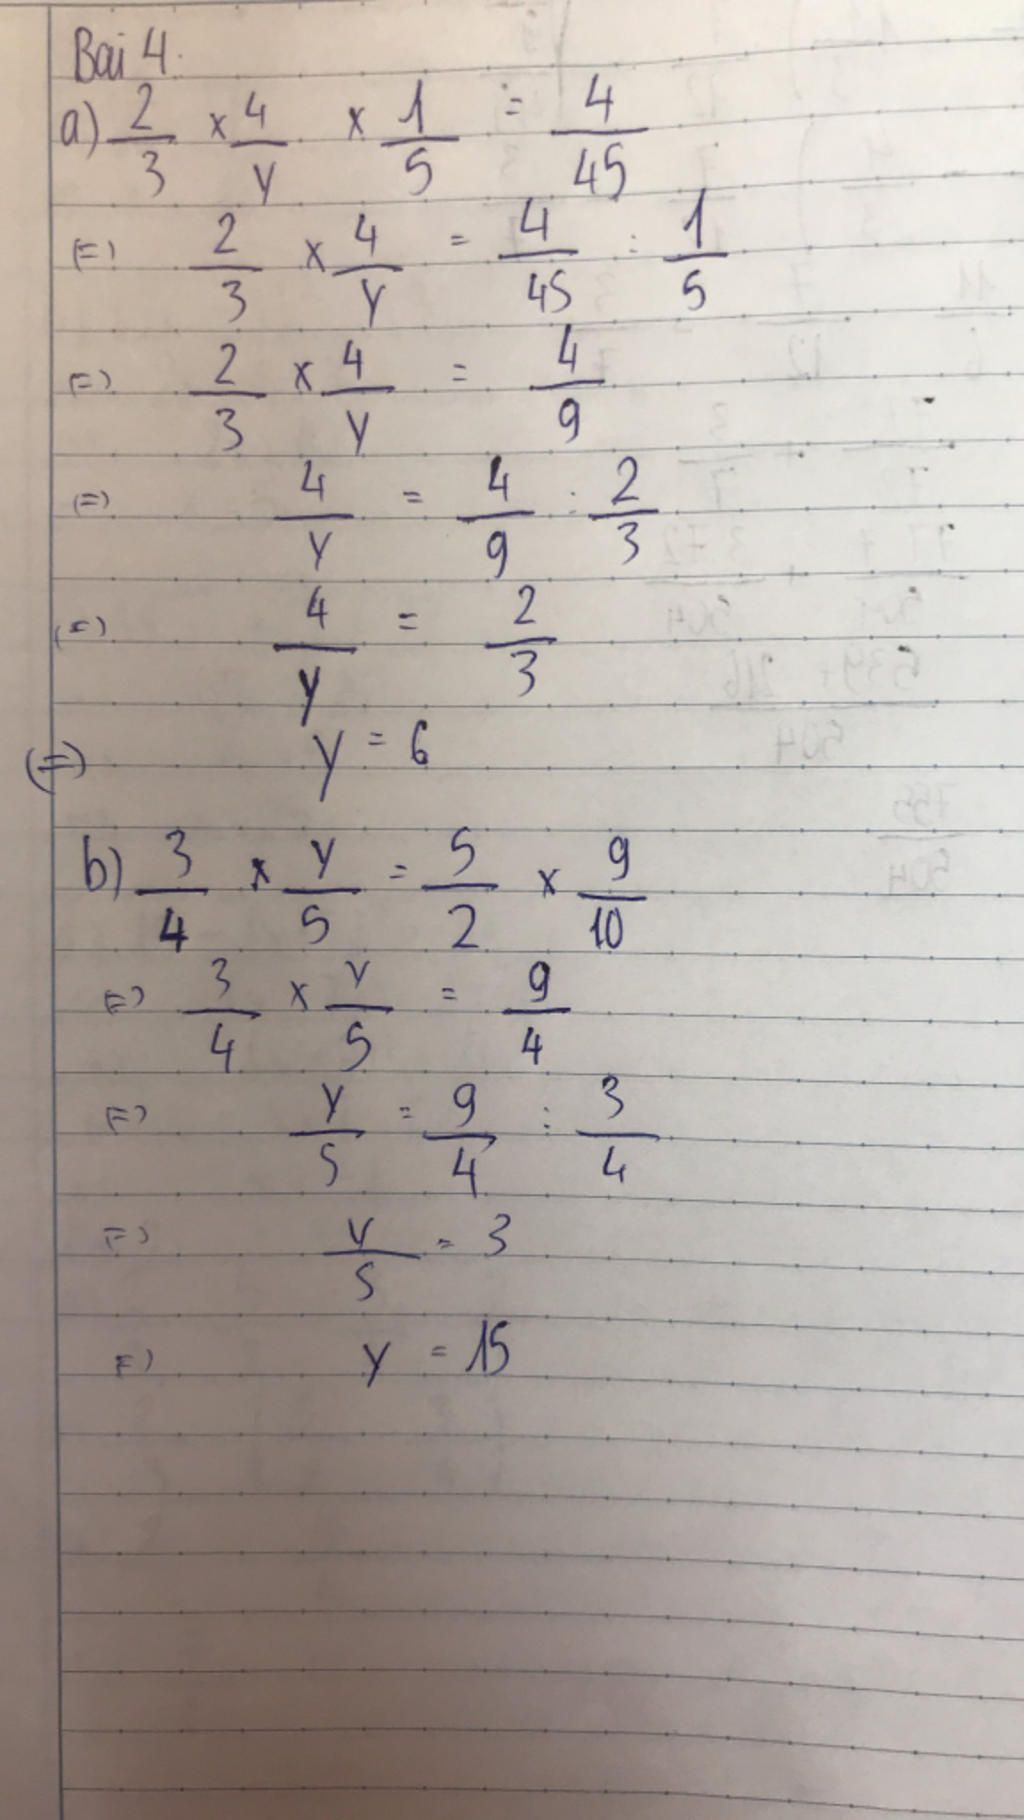 Bài 4.
a) 2/3 x 4/y x 1/5 = 4/45
(=) 2/3 x 4/y = 4/45 : 1/5
(=) 2/3 x 4/y = 4/9
(=) 4/y = 4/9 : 2/3
(=) 4/y = 2/3
(=) y = 6
b) 3/4 x y/5 = 5/2 x 9/10
(=) 3/4 x y/5 = 9/4
(=) y/5 = 9/4 : 3/4
(=) y/5 = 3
(=) y = 15